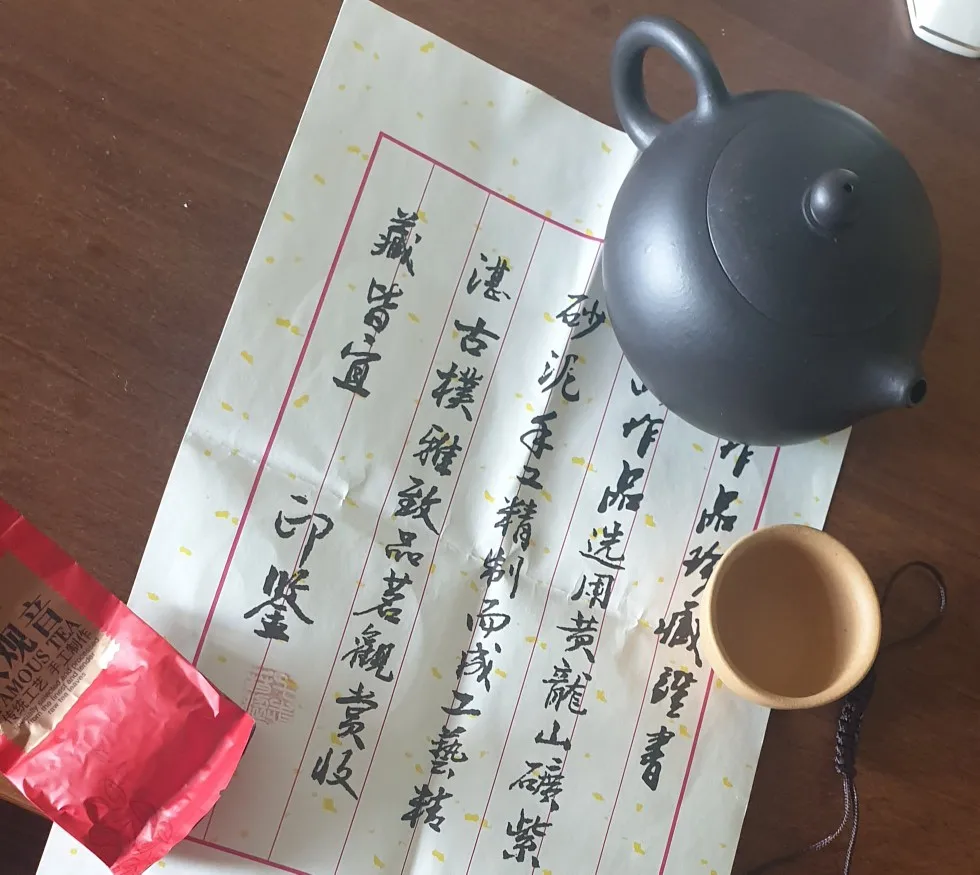 作品珍藏證書
作品选用黄龍山礦紫
砂泥手工精制而成工藝精
湛古樸雅致品茗觀赏收
藏皆宜
印鑒
观音
AMOUS TEA
传统工艺 手工制作